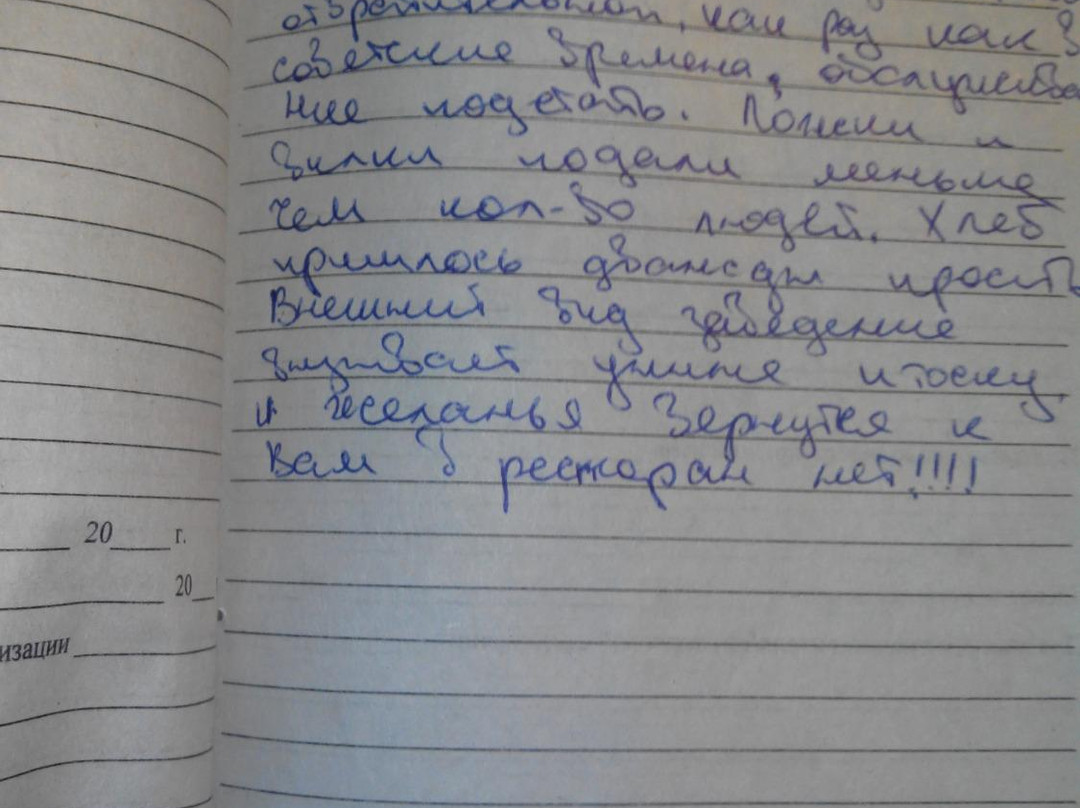 отвратительной, как раз как в
советские времена, обслужива
ние подстать. Ножи и
вилки подали меньше
чем кол-во людей. Хлеб
пришлось дважды просить
Внешний вид заведение
внушает уныние и тоску
и желанья вернутся к
вам в ресторан нет!!!!
20 г.
20
изации